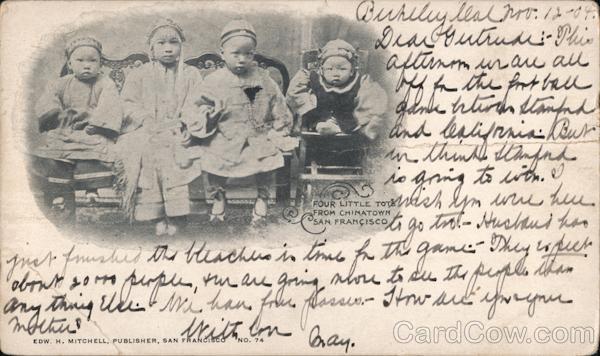 Berkeley Cal Nov. 12-04.
Dear Gertrude:- This
afternoon we are all
off for the foot ball
game between Stanford
and California. But
we think Stanford
is going to win. I
wish you were here
to go too.- Husband has
FOUR LITTLE TOTS
FROM CHINATOWN
SAN FRANCISCO
just finished the bleachers in time for the game.- They expect
about 20000 people, + we are going more to see the people than
any thing else.- We have four passes.- How are you + your
Mother?
With love
May.
EDW. H. MITCHELL, PUBLISHER, SAN FRANCISCO NO. 74
CardCow.com